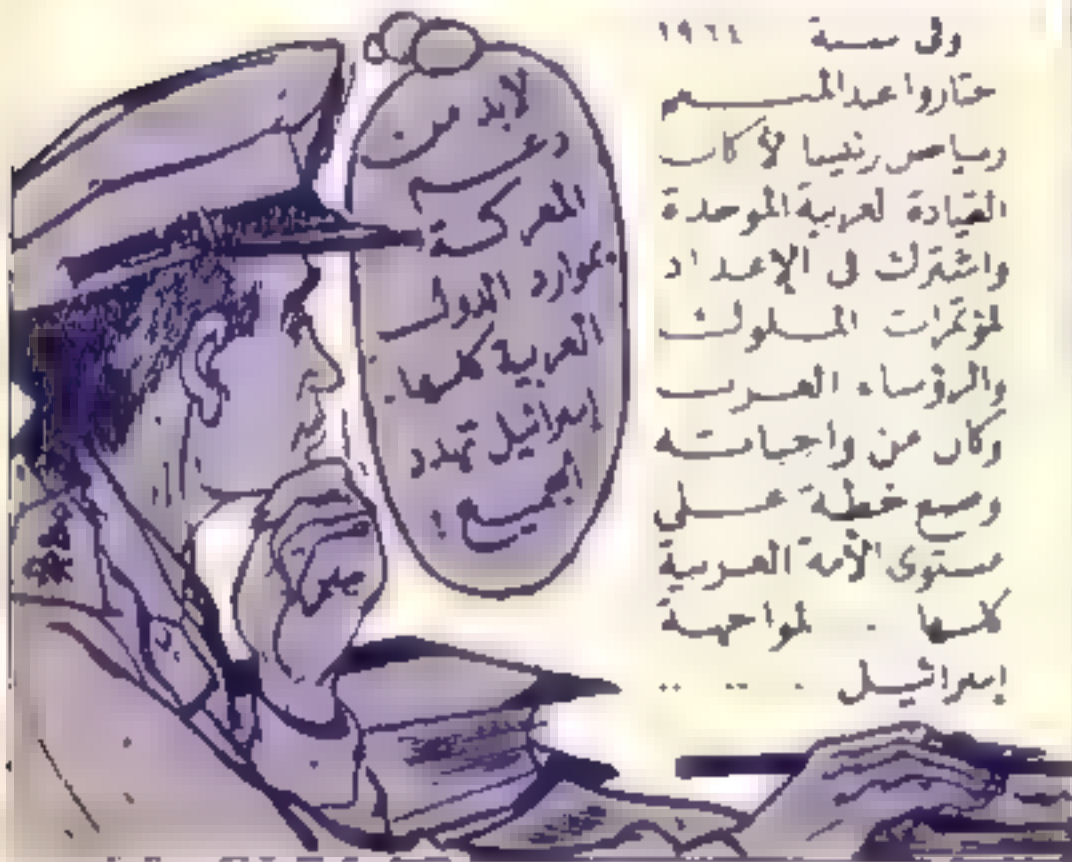 وفى سنة ١٩٦٤
ختاروا عبد المنعم
رياض رئيسا لأركان
القيادة لعربية الموحدة
واشترك فى الإعداد
لمؤتمرات الملوك
والرؤساء العرب
وكان من واجباته
وضع خطة على
مستوى الأمة العربية
كلها . لمواجهة
إسرائيل . .. ..
لابد من
دعم
المعركة
بموارد الدول
العربية كلها.
إسرائيل تهدد
الجميع !